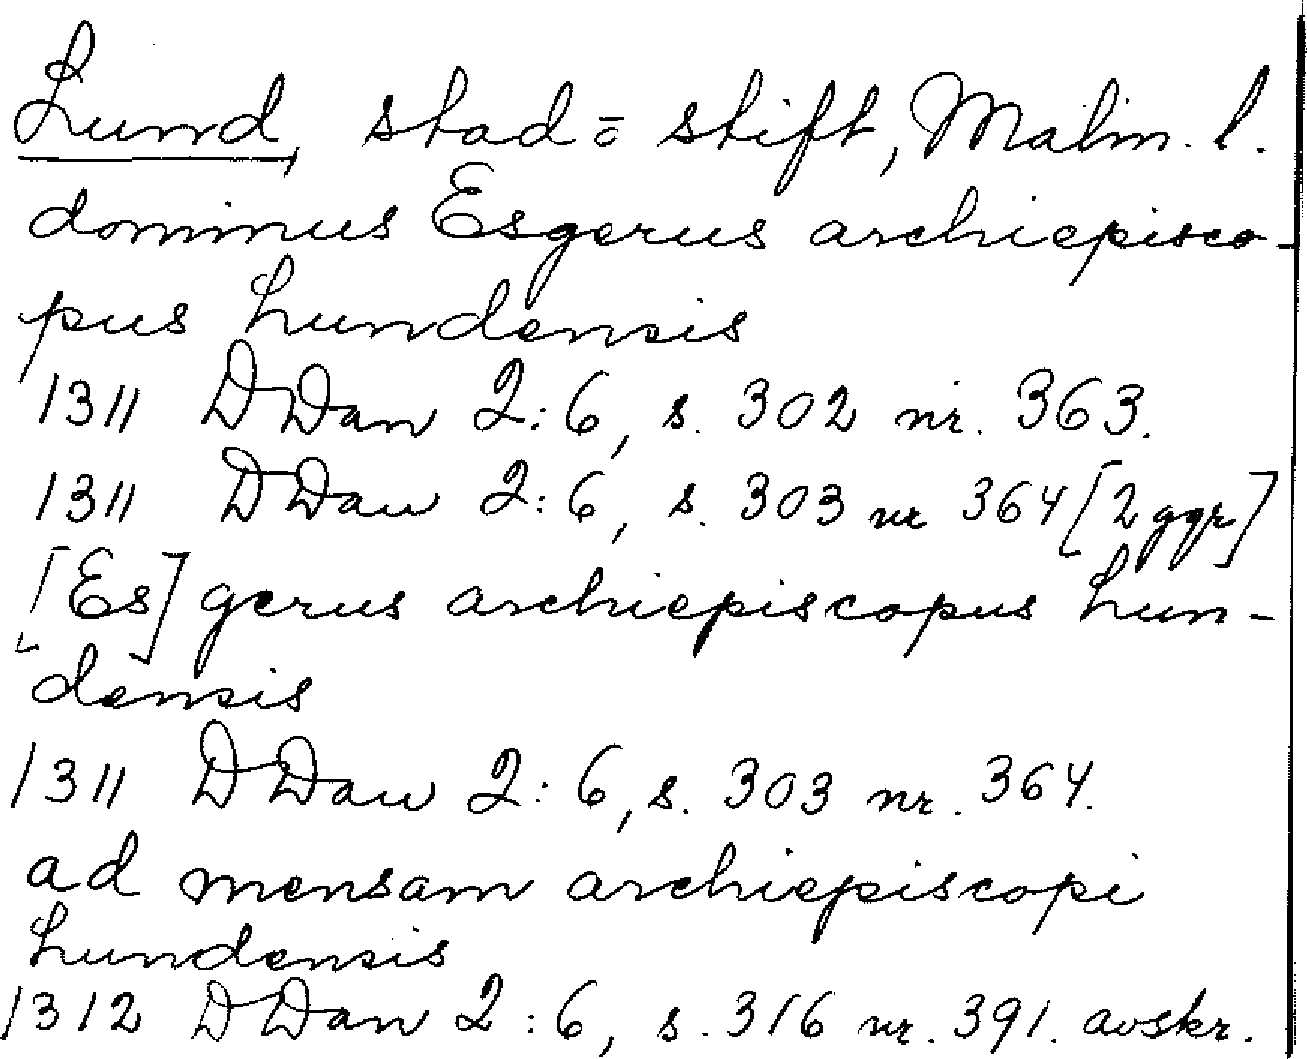 Lund, stad o stift, Malm. l.
dominus Esgerus archiepisco-
pus Lundensis
1311 DDan 2:6, s. 302 nr. 363.
1311 DDan 2:6, s. 303 nr 364 [2 ggr]
[Es]gerus archiepiscopus Lun-
densis
1311 DDan 2:6, s. 303 nr. 364.
ad mensam archiepiscopi
Lundensis
1312 DDan 2:6, s. 316 nr. 391. avskr.